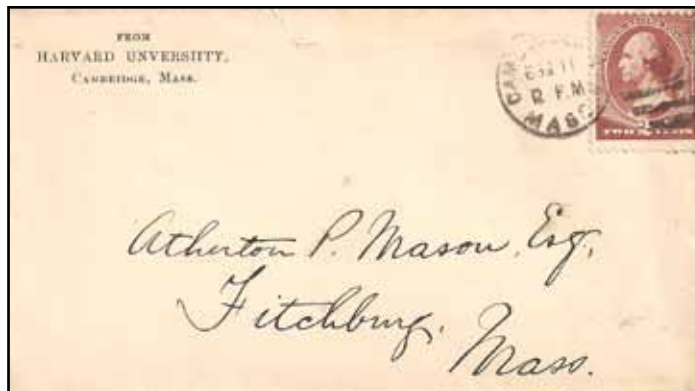 FROM
HARVARD UNVERSIITY,
CAMBRIDGE, MASS.
MASS
TWO CENTS
Atherton P. Mason, Esq,
Fitchburg,
Mass.